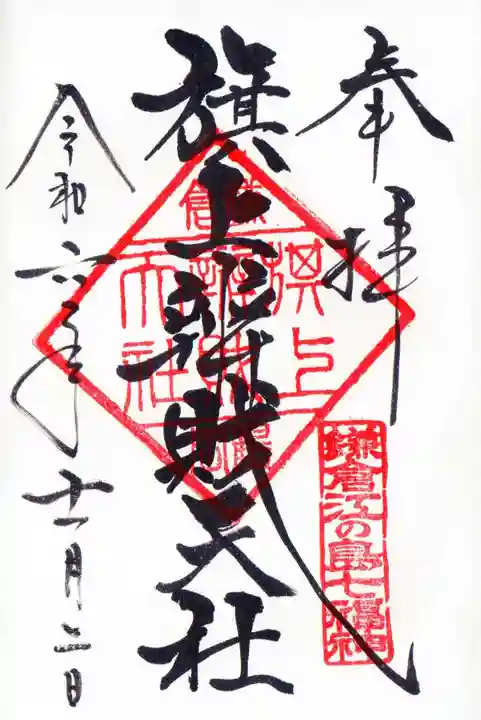 奉拝
鎌倉江の島七福神
旗上辨財天社
旗上
辨財
天社
令和六年十一月二日